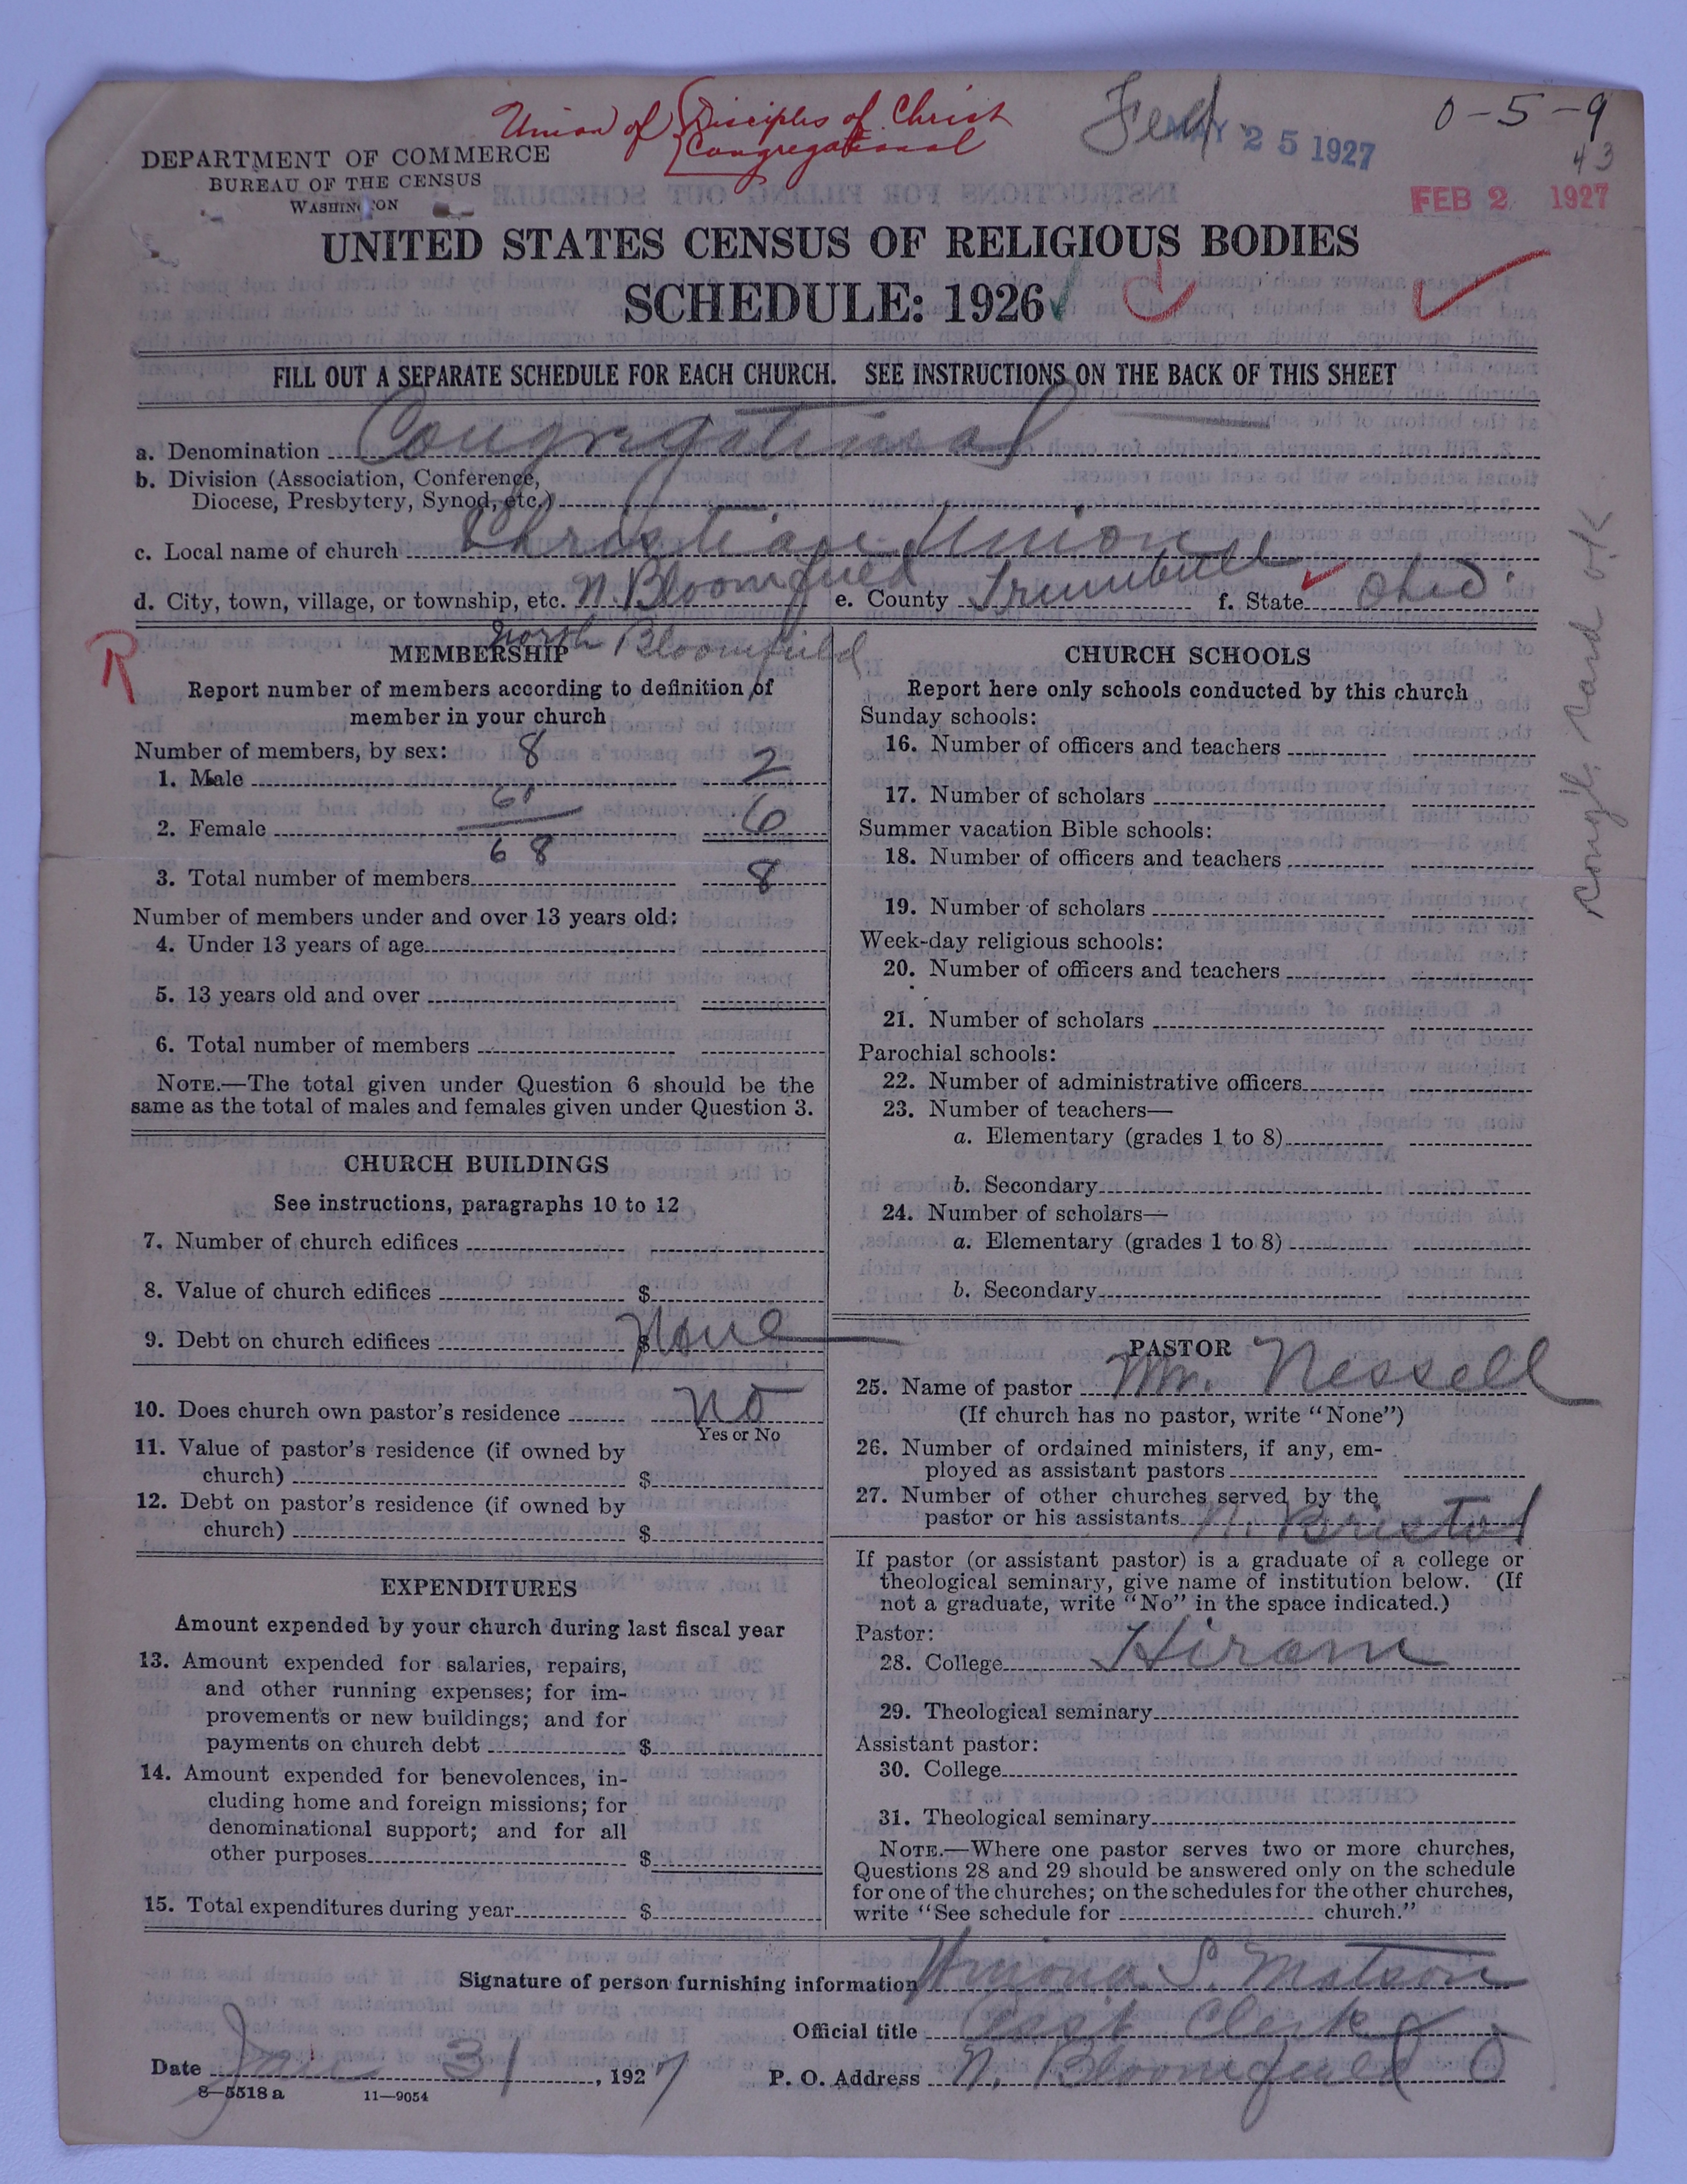 Union of Disciples of Christ
Congregational
Fed
MAY 25 1927
0-5-9
43
FEB 2 1927
DEPARTMENT OF COMMERCE
BUREAU OF THE CENSUS
WASHINGTON
UNITED STATES CENSUS OF RELIGIOUS BODIES
SCHEDULE: 1926
FILL OUT A SEPARATE SCHEDULE FOR EACH CHURCH. SEE INSTRUCTIONS ON THE BACK OF THIS SHEET
a. Denomination Congregational
b. Division (Association, Conference,
Diocese, Presbytery, Synod, etc.)
c. Local name of church Christian Union
d. City, town, village, or township, etc. N. Bloomfield e. County Trumbull f. State Ohio.
North Bloomfield
R
Cong'l. Card O.K.
MEMBERSHIP
Report number of members according to definition of
member in your church
Number of members, by sex: 8
1. Male 2
60
2. Female 6
68
3. Total number of members 8
Number of members under and over 13 years old:
4. Under 13 years of age
5. 13 years old and over
6. Total number of members
NOTE.—The total given under Question 6 should be the
same as the total of males and females given under Question 3.
CHURCH BUILDINGS
See instructions, paragraphs 10 to 12
7. Number of church edifices
8. Value of church edifices $
9. Debt on church edifices $ None
10. Does church own pastor's residence No
Yes or No
11. Value of pastor's residence (if owned by
church) $
12. Debt on pastor's residence (if owned by
church) $
EXPENDITURES
Amount expended by your church during last fiscal year
13. Amount expended for salaries, repairs,
and other running expenses; for im-
provements or new buildings; and for
payments on church debt $
14. Amount expended for benevolences, in-
cluding home and foreign missions; for
denominational support; and for all
other purposes $
15. Total expenditures during year $
CHURCH SCHOOLS
Report here only schools conducted by this church
Sunday schools:
16. Number of officers and teachers
17. Number of scholars
Summer vacation Bible schools:
18. Number of officers and teachers
19. Number of scholars
Week-day religious schools:
20. Number of officers and teachers
21. Number of scholars
Parochial schools:
22. Number of administrative officers
23. Number of teachers—
a. Elementary (grades 1 to 8)
b. Secondary
24. Number of scholars—
a. Elementary (grades 1 to 8)
b. Secondary
PASTOR
25. Name of pastor Mr. Nessell
(If church has no pastor, write "None")
26. Number of ordained ministers, if any, em-
ployed as assistant pastors
27. Number of other churches served by the
pastor or his assistants N. Bristol
If pastor (or assistant pastor) is a graduate of a college or
theological seminary, give name of institution below. (If
not a graduate, write "No" in the space indicated.)
Pastor:
28. College Hiram
29. Theological seminary
Assistant pastor:
30. College
31. Theological seminary
NOTE.—Where one pastor serves two or more churches,
Questions 28 and 29 should be answered only on the schedule
for one of the churches; on the schedules for the other churches,
write "See schedule for church."
Signature of person furnishing information S. Matson
Official title Past Clerk
Date Jan 31, 1927 P. O. Address N. Bloomfield O
8—5518a 11—9054